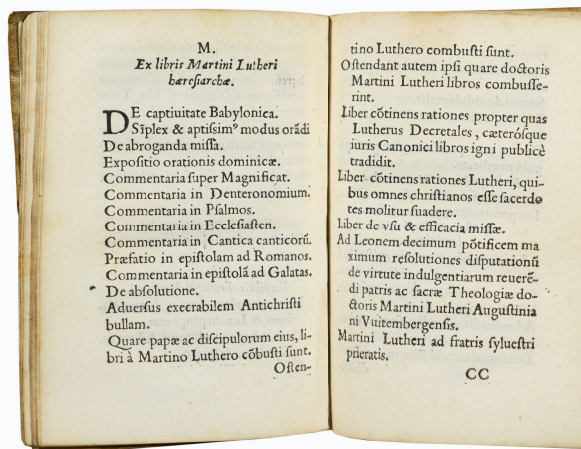 M.
Ex libris Martini Lutheri
hæresiarchæ.
DE captiuitate Babylonica.
Sīplex & aptiſimꝰ modus orādi
De abroganda miſſa.
Expoſitio orationis dominicæ.
Commentaria ſuper Magnificat.
Commentaria in Deuteronomium.
Commentaria in Pſalmos.
Commentaria in Eccleſiaſten.
Commentaria in Cantica canticorū.
Præfatio in epiſtolam ad Romanos.
Commentaria in epiſtolā ad Galatas.
De abſolutione.
Aduerſus execrabilem Antichriſti
bullam.
Quare papæ ac diſcipulorum eius, li-
bri à Martino Luthero cōbuſti ſunt.
Oſten-
tino Luthero combuſti ſunt.
Oſtendant autem ipſi quare doctoris
Martini Lutheri libros combuſſe-
rint.
Liber cōtinens rationes propter quas
Lutherus Decretales, cæteróſque
iuris Canonici libros igni publicè
tradidit.
Liber cōtinens rationes Lutheri, qui-
bus omnes chriſtianos eſſe ſacerdo
tes molitur ſuadere.
Liber de vſu & efficacia miſſæ.
Ad Leonem decimum pōtificem ma
ximum reſolutiones diſputationū
de virtute indulgentiarum reuerē-
di patris ac ſacræ Theologiæ do-
ctoris Martini Lutheri Auguſtinia
ni Vuitembergenſis.
Martini Lutheri ad fratris ſylueſtri
prieratis.
CC